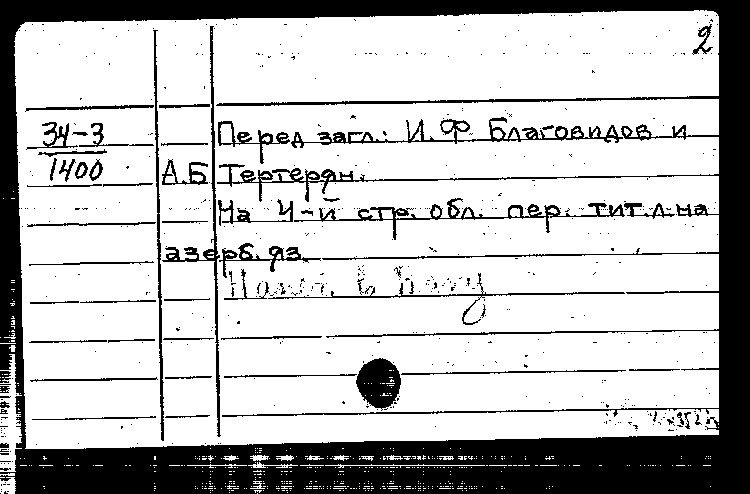 2
34-3
1400
Перед загл.: И.Ф Благовидов и
А.Б Тертерян.
На 4-й стр. обл. пер. тит.л.на
азерб. яз.
Напеч. в Баку